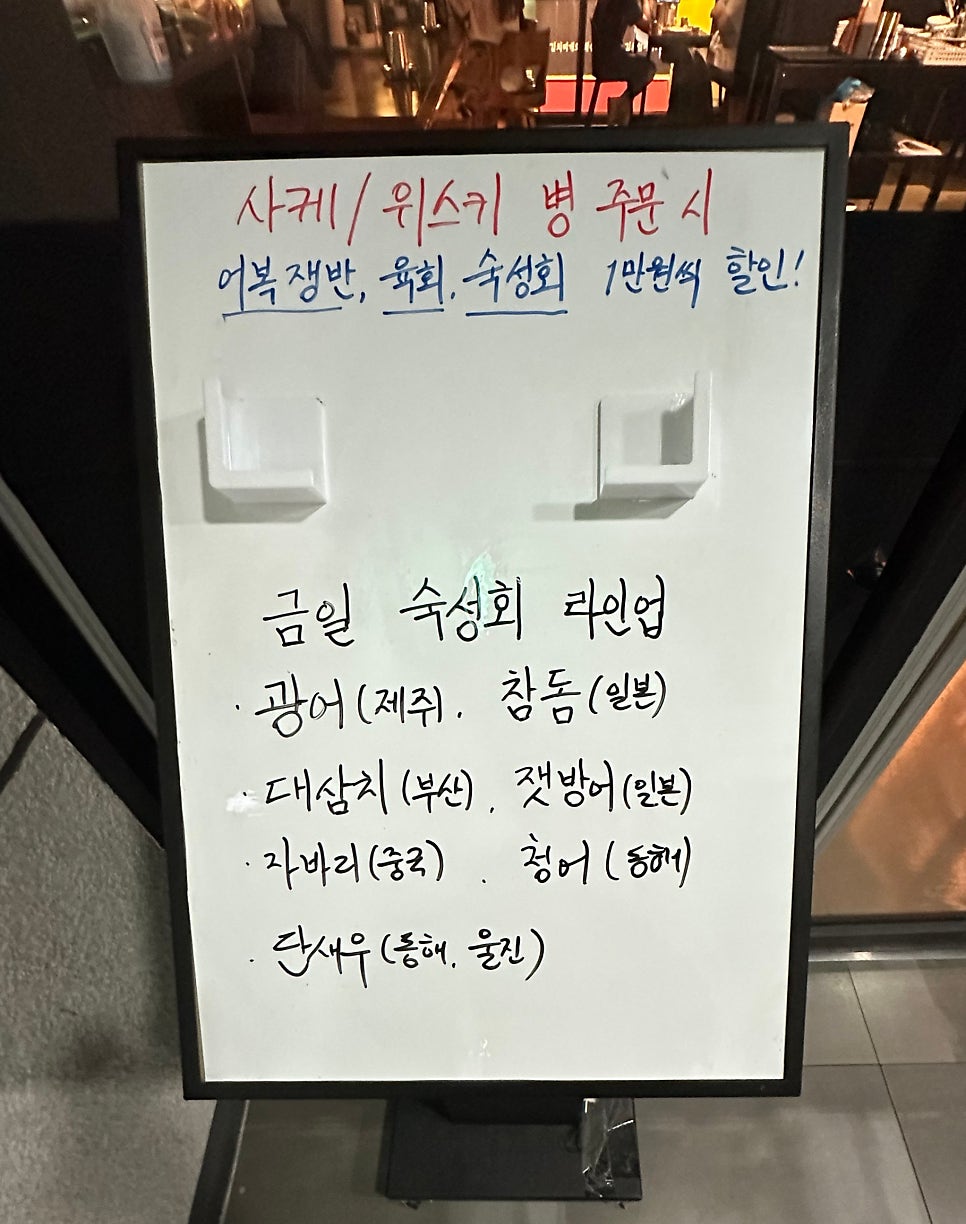 사케/위스키 병 주문 시
어복쟁반, 육회, 숙성회 1만원씩 할인!
금일 숙성회 라인업
· 광어(제주). 참돔(일본)
· 대삼치(부산). 잿방어(일본)
· 자바리(중국). 청어(동해)
· 단새우(동해, 울진)